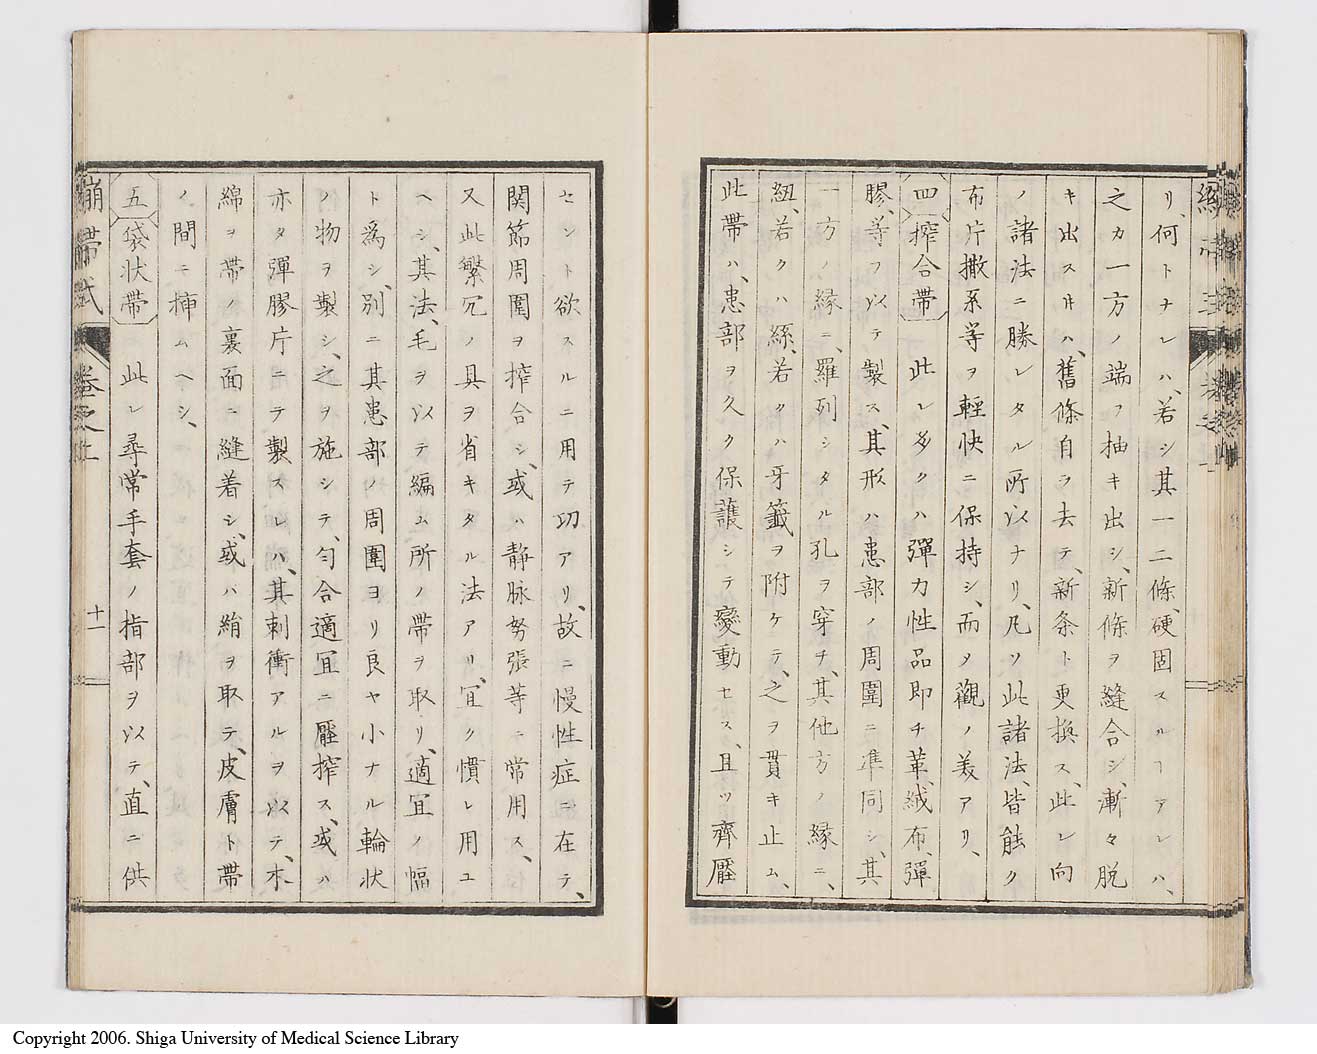 リ、何トナレハ、若シ其一二條、硬固スルヿアレハ、
之カ一方ノ端ヲ抽キ出シ、新條ヲ縫合シ、漸々脱
キ出スキハ、舊條自ラ去テ、新条ト更換ス、此レ向
ノ諸法ニ勝レタル所以ナリ、凡ソ此諸法、皆能ク
布片撒系等ヲ輕快ニ保持シ、而メ觀ノ美アリ、
四 搾合帶 此レ多クハ彈力性品即チ革、絨布、彈
膠、等ヲ以テ製ス、其形ハ患部ノ周圍ニ準同シ、其
一方ノ縁ニ、羅列シタル孔ヲ穿チ、其他方ノ縁ニ、
紐、若クハ絲、若クハ牙籤ヲ附ケテ、之ヲ貫キ止ム、
此帶ハ、患部ヲ久ク保護シテ變動セス、且ツ齊壓
セント欲スルニ用テ功アリ、故ニ慢性症ニ在テ、
関節周圍ヲ搾合シ、或ハ静脉努張等ニ常用ス、
又此繁冗ノ具ヲ省キタル法アリ、宜ク慣レ用ユ
ヘシ、其法、毛ヲ以テ編ム所ノ帶ヲ取リ、適宜ノ幅
ト爲シ、別ニ其患部ノ周圍ヨリ良ヤ小ナル輪状
ノ物ヲ製シ、之ヲ施シテ、匀合適宜ニ壓搾ス、或ハ
亦タ彈膠片ニテ製スレハ、其刺衝アルヲ以テ、木
綿ヲ帶ノ裏面ニ縫着シ、或ハ絹ヲ取テ、皮膚ト帶
ノ間ニ挿ムヘシ、
五 袋状帶 此レ尋常手套ノ指部ヲ以テ、直ニ供
十一
Copyright 2006. Shiga University of Medical Science Library